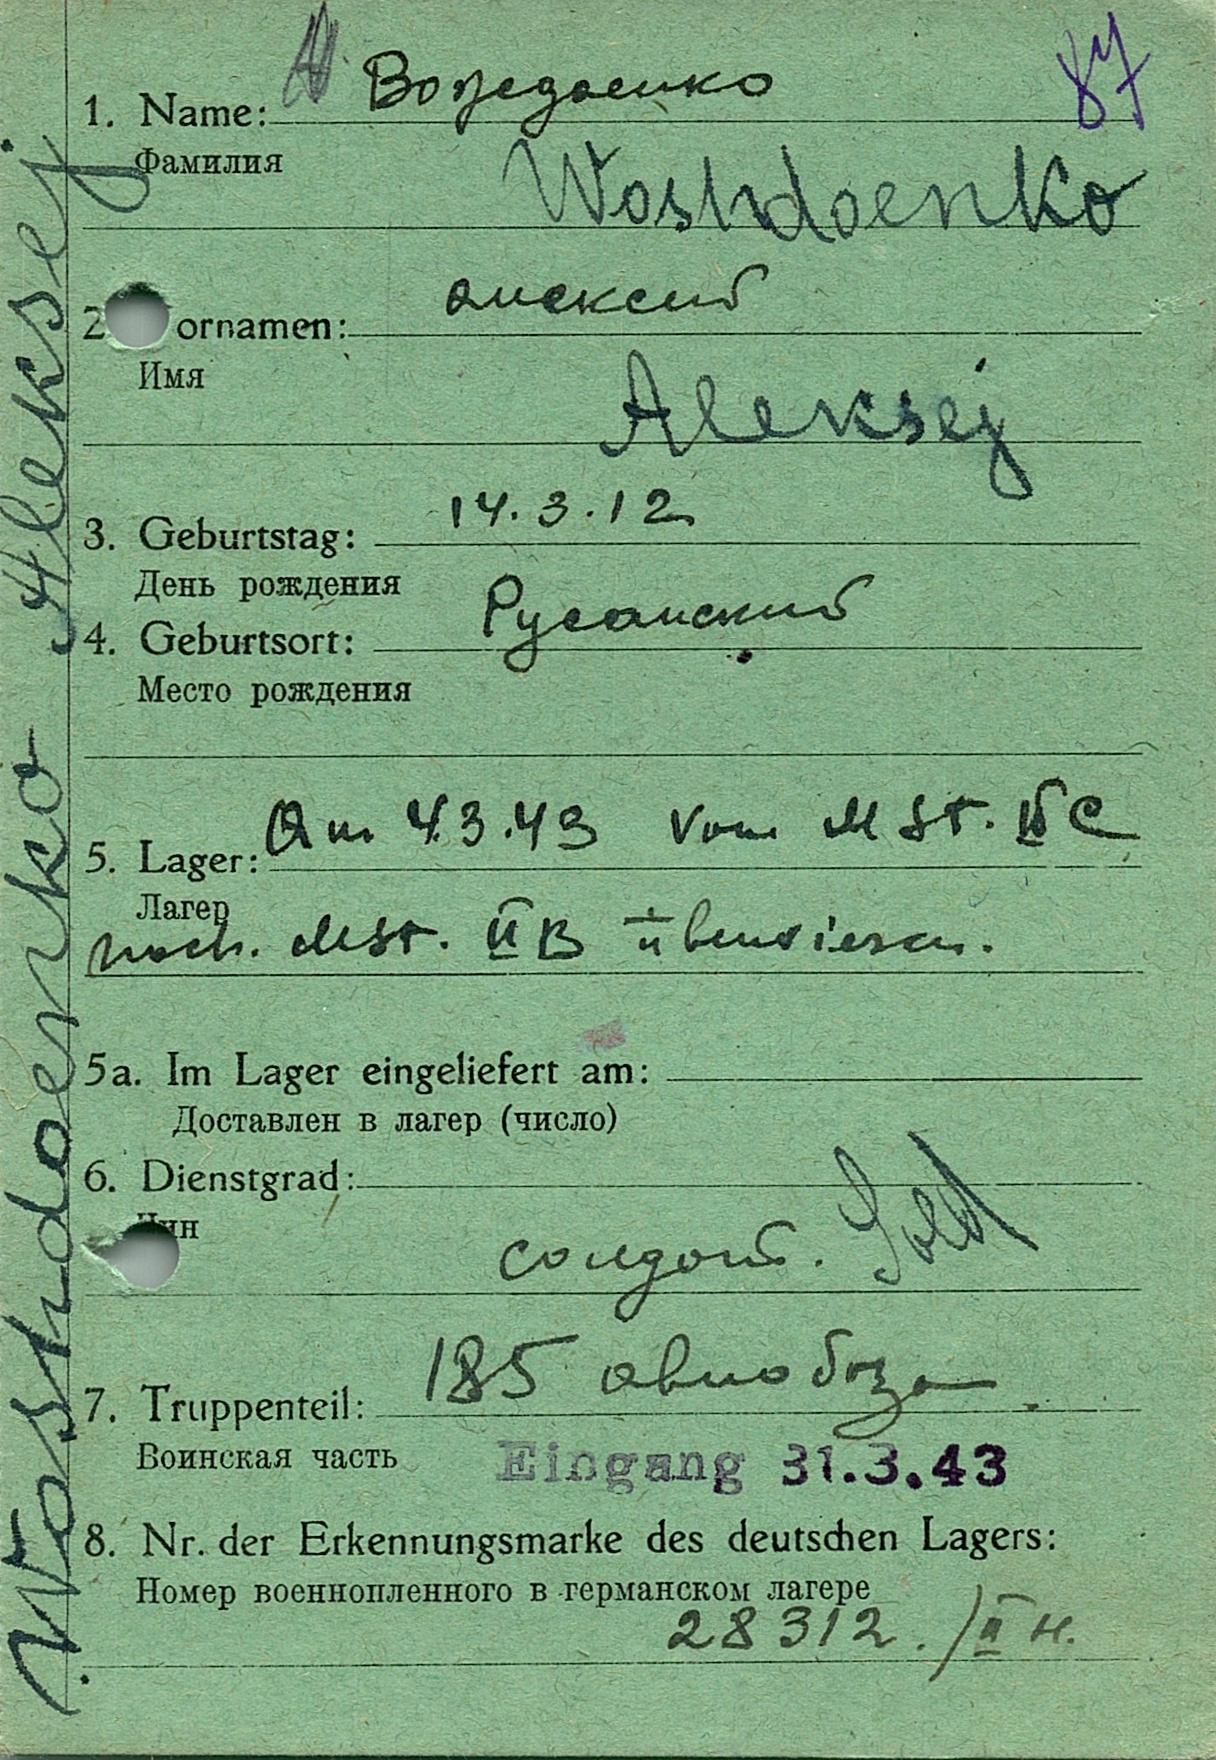 87
1. Name: Вождаенко
Фамилия
Woshdoenko
2 ornamen: алексей
Имя
Aleksej
3. Geburtstag: 14.3.12
День рождения
4. Geburtsort: Русанский
Место рождения
5. Lager: Am 4.3.43 vom M St. II C
Лагер
nach. MSt. II B überwiesen.
5a. Im Lager eingeliefert am:
Доставлен в лагер (число)
6. Dienstgrad:
Чин
солдат. Sold
7. Truppenteil: 185 авиобаза
Воинская часть
Eingang 31.3.43
8. Nr. der Erkennungsmarke des deutschen Lagers:
Номер военнопленного в германском лагере
28312./II H.
Woshdoenko Aleksej